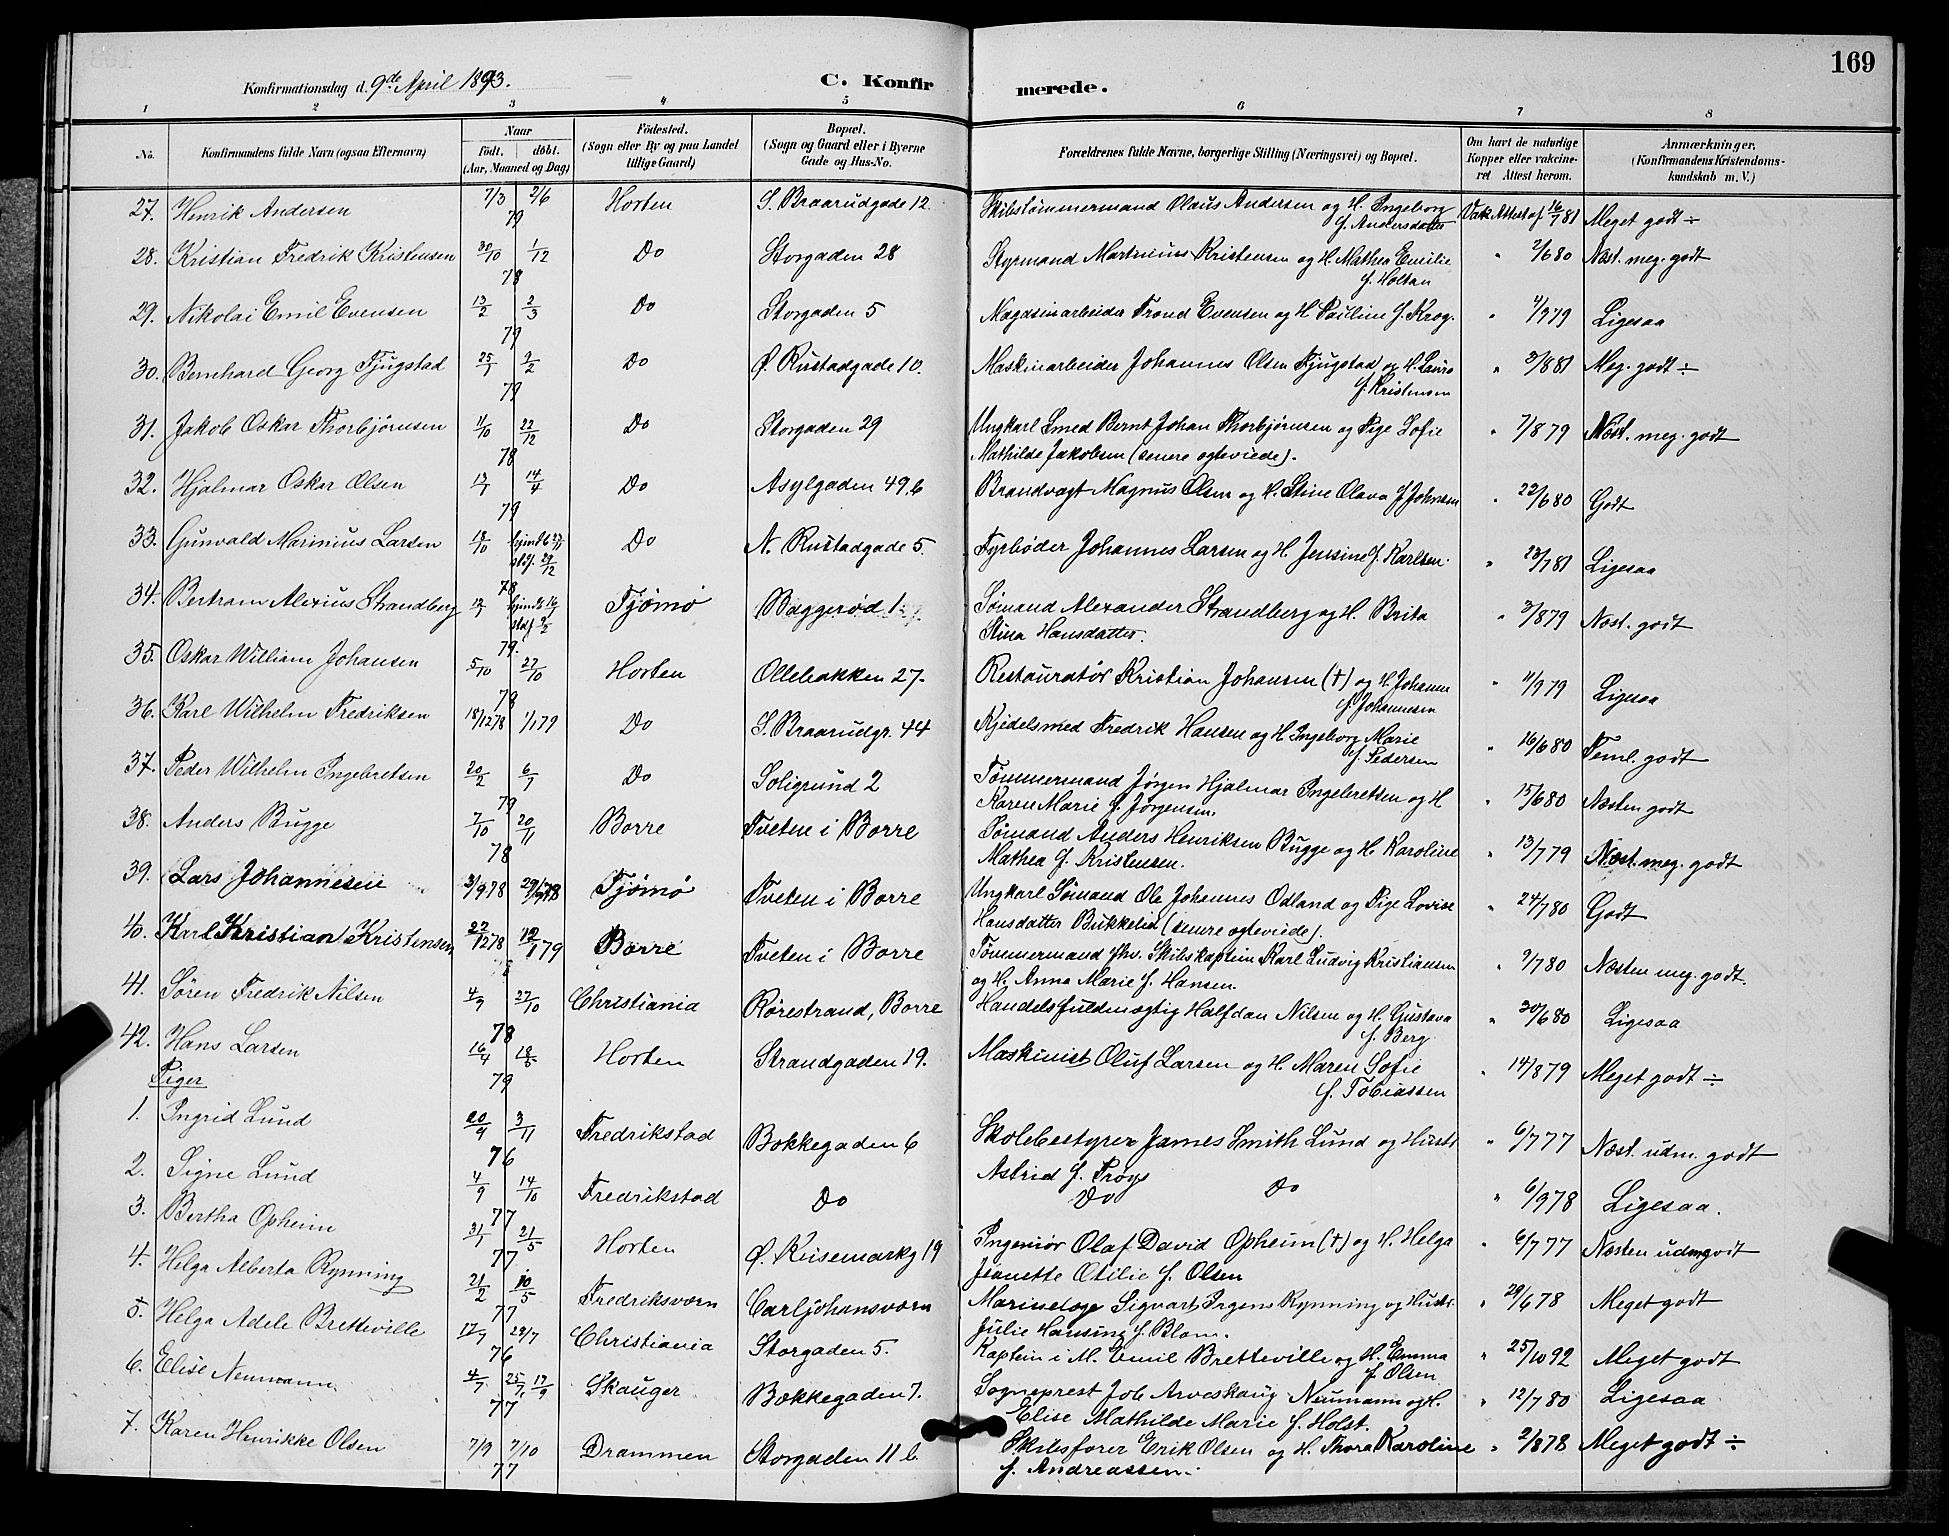 169
Konfirmationsdag d. 9de April 1893. C. Konfirmerede.
1 2 3 4 5 6 7 8
No. Konfirmandens fulde Navn (ogsaa Efternavn) Naar Födt. döbt. (Aar, Maaned og Dag) Födested. (Sogn eller By og paa Landet tillige Gaard) Bopæl. (Sogn og Gaard eller i Byerne Gade og Hus-No. Forældrenes fulde Navne, borgerlige Stilling (Næringsvei) og Bopæl. Om havt de naturlige Kopper eller vakcineret Attest herom. Anmærkninger, (Konfirmandens Kristendomskundskab m. V.)
27. Henrik Andersen 7/3 2/6 79 Horten S. Braarudgade 12 Skibstömmermand Olaus Andersen og H. Ingeborg f. Andersdatter Vak. Attest af 16/7 81 Meget godt ÷
28. Kristian Fredrik Kristensen 30/10 1/12 78 Do Storgaden 28 Styrmand Martinius Kristensen og H. Mathea Emilie f. Holtan " 2/6 80 Næst. meg. godt
29. Nikolai Emil Evensen 13/2 2/3 79 Do Storgaden 5 Magasinarbeider Trond Evensen og H. Pauline f. Krog. " 4/9 79 Ligesaa
30. Bernhard Georg Fjugstad 25/1 2/2 79 Do Ø. Rustadgade 10. Maskinarbeider Johannes Olsen Fjugstad og H. Laura f. Kristensen " 3/8 81 Meg. godt ÷
31. Jakob Oskar Thorbjörnsen 11/10 22/12 78 Do Storgaden 29 Ungkarl Smed Bernt Johan Thorbjörnsen og Pige Sofie Mathilde Jakobsen (senere ægteviede). " 7/8 79 Næst. meg. godt
32. Hjalmar Oskar Olsen 13/1 14/4 79 Do Asylgaden 49.b Brandvagt Magnus Olsen og H. Stine Olava f. Johnsen " 22/6 80 Godt
33. Gunvald Marinius Larsen 18/10 hjmdb 23/11 stdf. 29/12 78 Do N. Rustadgade 5. Fyrböder Johannes Larsen og H. Jensine f. Karlsen " 23/7 81 Ligesaa
34. Bertram Alexius Strandberg 12/1 hjmdb 16/1 stdf 9/2 79. Tjömö Baggerød 1 Sömand Alexander Strandberg og H. Brita Stina Hansdatter. " 3/8 79 Næst. godt
35. Oskar William Johansen 5/10 27/10 78 Horten Ollebakken 27. Restauratör Kristian Johansen (†) og H. Johanne f. Johannesen " 11/9 79 Ligesaa
36. Karl Wilhelm Fredriksen 18/12 78 1/1 79 Do S. Braarudgr. 44 Kjedelsmed Fredrik Hansen og H. Ingeborg Marie f. Pedersen " 16/6 80 Teml. godt
37. Peder Wilhelm Ingebretsen 20/2 6/7 79 Do Soligrund 2 Tömmermand Jørgen Hjalmar Ingebretsen og H Karen Marie f. Jørgensen. " 15/6 80 Næsten godt
38. Anders Bugge 7/10 20/11 78 Borre Tveten i Borre Sömand Anders Henriksen Bugge og H. Karoline Mathea f. Kristensen. " 13/7 79 Næst. meg. godt
39. Lars Johannesen 3/9 78 Tjömö Tveten i Borre Ungkarl Sömand Ole Johannes Odland og Pige Lovise Hansdatter Bukkelid (senere ægteviede). " 24/7 80 Godt
40. Karl Kristian Kristensen 22/12 78 12/1 79 Borre Tveten i Borre Tömmermand fhv. Skibskaptein Karl Ludvig Kristiansen og H. Anna Marie f. Hansen. " 9/7 80 Næsten meg. godt.
41. Sören Fredrik Nilsen 4/9 27/10 78 Christiania Rørestrand, Borre Handelsfuldmægtig Halfdan Nilsen og H. Gustava f. Berg " 30/6 80 Ligesaa
42. Hans Larsen 16/4 18/5 79 Horten Strandgaden 19. Maskinist Oluf Larsen og H. Maren Sofie f. Tobiassen " 14/8 79 Meget godt ÷
Piger
1. Ingrid Lund 20/9 3/11 76 Fredrikstad Bokkegaden 6 Skolebestyrer James Smith Lund og Hustr Astrid f. Frøys " 6/7 77 Næst. udm. godt
2. Signe Lund 4/9 14/10 77 Fredrikstad Do Do Do " 6/9 78 Ligesaa.
3. Bertha Opheim 31/1 21/5 77 Horten Ø. Keisemarkg 19 Ingeniör Olaf David Opheim (†) og H. Helga Jeanette Otilie f. Olsen " 6/7 77 Næsten udm godt
4. Helga Alberta Rynning 21/2 10/5 77 Fredriksværn Carljohansværn Marinelæge Sigvart Irgens Rynning og Hustr. Julie Hansine f. Blom. " 29/6 78 Meget godt
5. Helga Adele Bretteville 17/7 29/7 76 Christiania Storgaden 5. Kaptein i M. Emil Bretteville og H. Emma f. Olsen " 25/10 92 Meget godt
6. Elise Neumann 4/7 25/7 17/9 77 Skauger Bokkegaden 7. Sogneprest Job Arveskoug Neumann og H. Elise Mathilde Marie f. Holst. " 12/7 80 Ligesaa
7. Karen Henrikke Olsen 7/9 7/10 77 Drammen Storgaden 11 b Skibsförer Erik Olsen og H. Thora Karoline f. Andreassen. " 2/8 78 Meget godt ÷